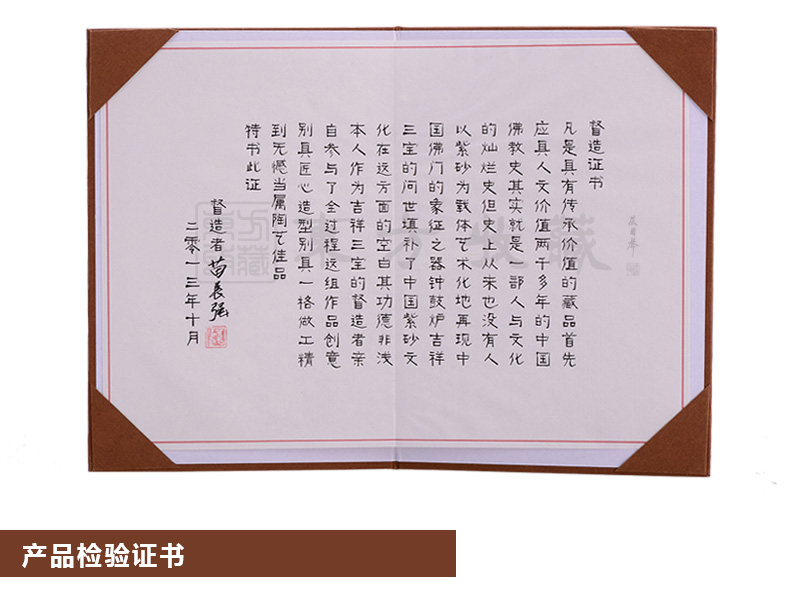 督造证书
凡是具有传承价值的藏品首先
应具人文价值两千多年的中国
佛教史其实就是一部人与文化
的灿烂史但史上从来也没有人
以紫砂为载体艺术化地再现中
国佛门的象征之器钟鼓炉吉祥
三宝的问世填补了中国紫砂文
化在这方面的空白其功德非浅
本人作为吉祥三宝的督造者亲
自参与了全过程这组作品创意
别具匠心造型别具一格做工精
到无憾当属陶艺佳品
特书此证
督造者苗长强
二零一三年十月
东方收藏
产品检验证书